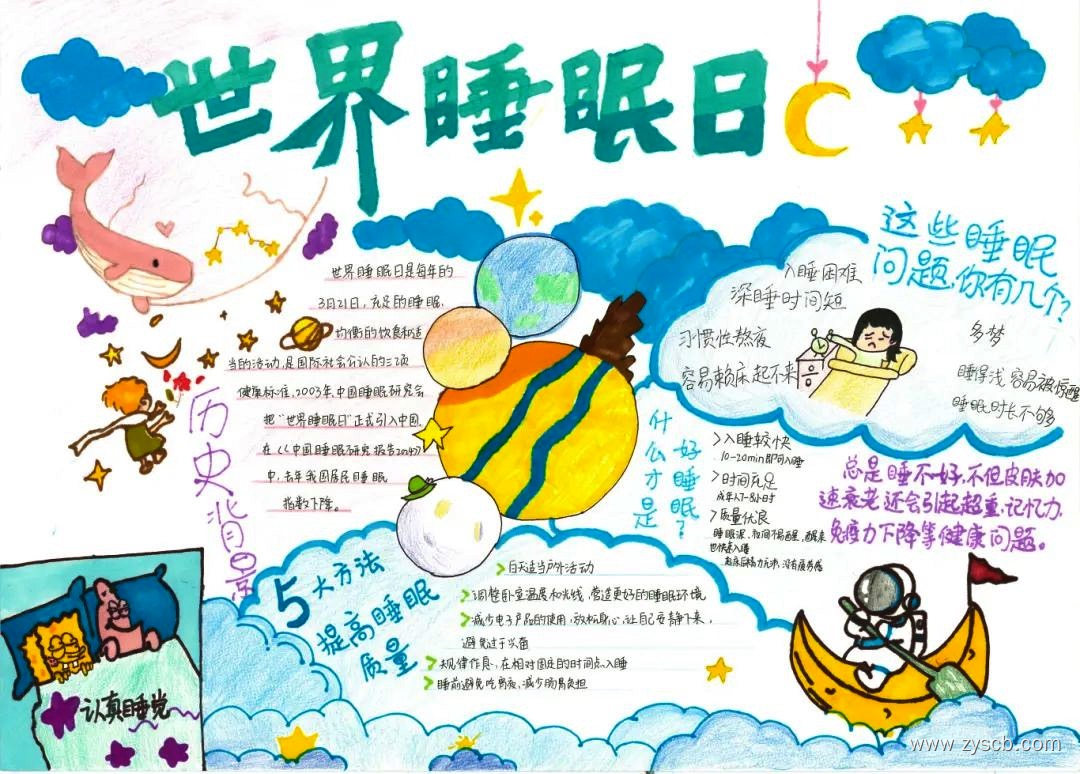 世界睡眠日
世界睡眠日是每年的
3月21日,充足的睡眠,
均衡的饮食和适
当的活动,是国际社会公认的三项
健康标准,2003年,中国睡眠研究会
把"世界睡眠日"正式引入中国
在《中国睡眠研究报告2047》
中,去年我国居民睡眠
指数下降。
历史背景
这些睡眠
问题,你有几个?
入睡困难
深睡时间短
习惯性熬夜
容易赖床起不来
多梦
睡得浅容易被惊醒
睡眠时长不够
什么才是
好睡眠?
>入睡较快
10-20min即可入睡
>时间充足
成年人7-8小时
>质量优良
睡眠深,夜间不易醒,醒来
也快速入睡
起床后精力充沛,没有疲劳感
总是睡不好,不但皮肤加
速衰老还会引起超重,记忆力,
免疫力下降等健康问题。
5大方法
提高睡眠
质量
>白天适当户外活动
>调整卧室温度和光线,营造更好的睡眠环境
>减少电子产品的使用,放松身心,让自己安静下来,
避免过于兴奋
>规律作息,在相对固定的时间点入睡
>睡前避免吃宵夜,减少肠胃负担
认真睡觉
www.zyscb.com